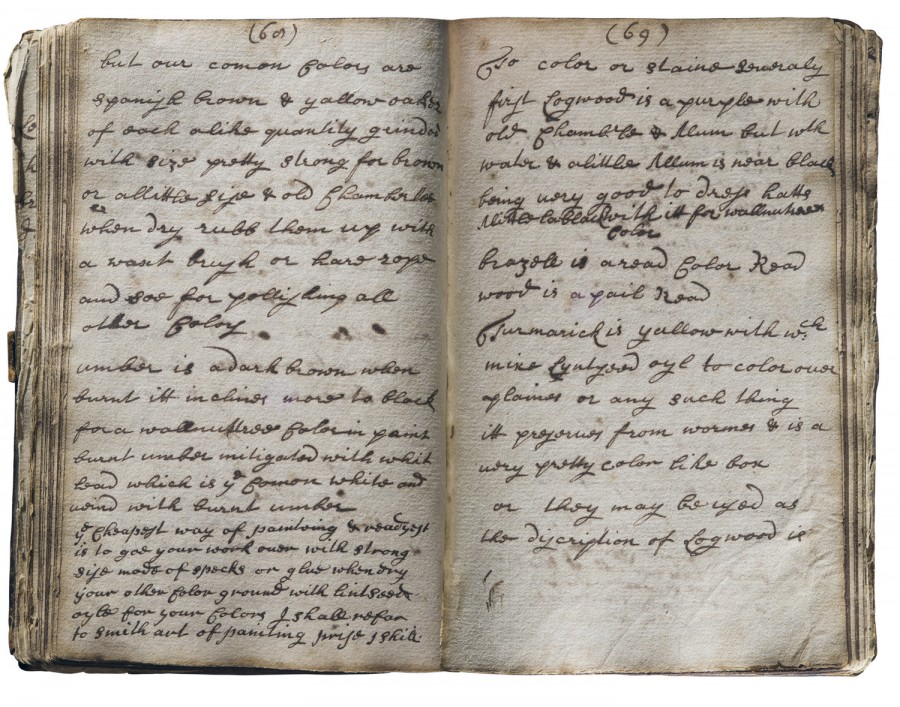 (68)
but our comon Colors are
spanish brown & yallow oaker
of each alike quantity grinded
with size pretty strong for brown
or allittle size & old Chamberlee
when dry rubb them up with
a wast brush or hare rope
and soe for pollishing all
other Colors
umber is a dark brown when
burnt itt inclines more to black
for a wallnuttree Color in paint
burnt umber mitigated with whit
lead which is ye Comon white and
veind with burnt umber
ye Cheapest way of painting & readyest
is to goe your work over with strong
size made of specks or glue when dry
your other Color ground with lintseed
oyle for your Colors I shall refar
to smith art of painting prise 1 shill:
(69)
To color or staine severaly
first Logwood is a purple with
old Chamberle & Allum but with
water & alittle Allum is near black
being very good to dress hatts
Alittle lablack with itt for wallnuttree
Color
brazele is a read Color Read
wood is a pail Read
Turmarick is yallow with wch
mixe Lyntseed oyl to color over
aplaines or any such thing
itt preserves from wormes & is a
very pretty color like box
or they may be used as
the discription of Logwood is